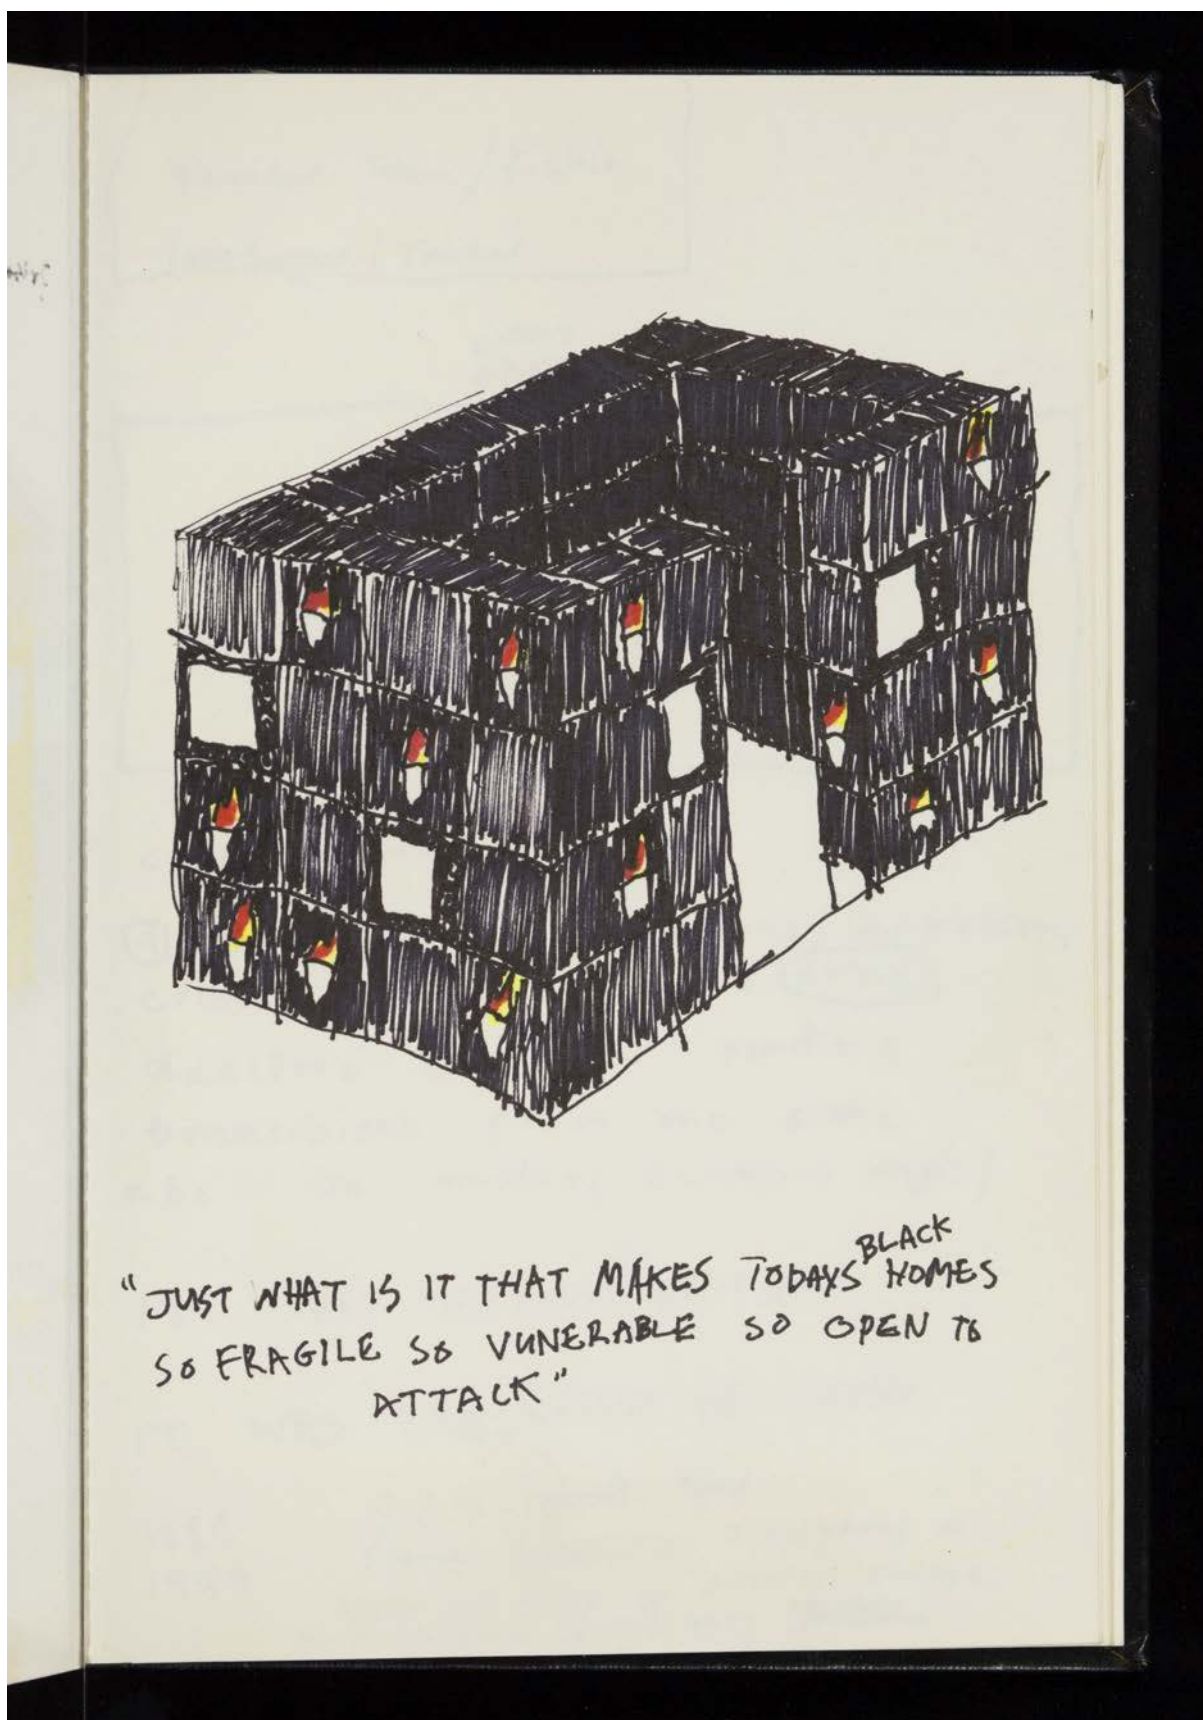 "JUST WHAT IS IT THAT MAKES TODAYS BLACK HOMES
SO FRAGILE SO VUNERABLE SO OPEN TO
ATTACK"